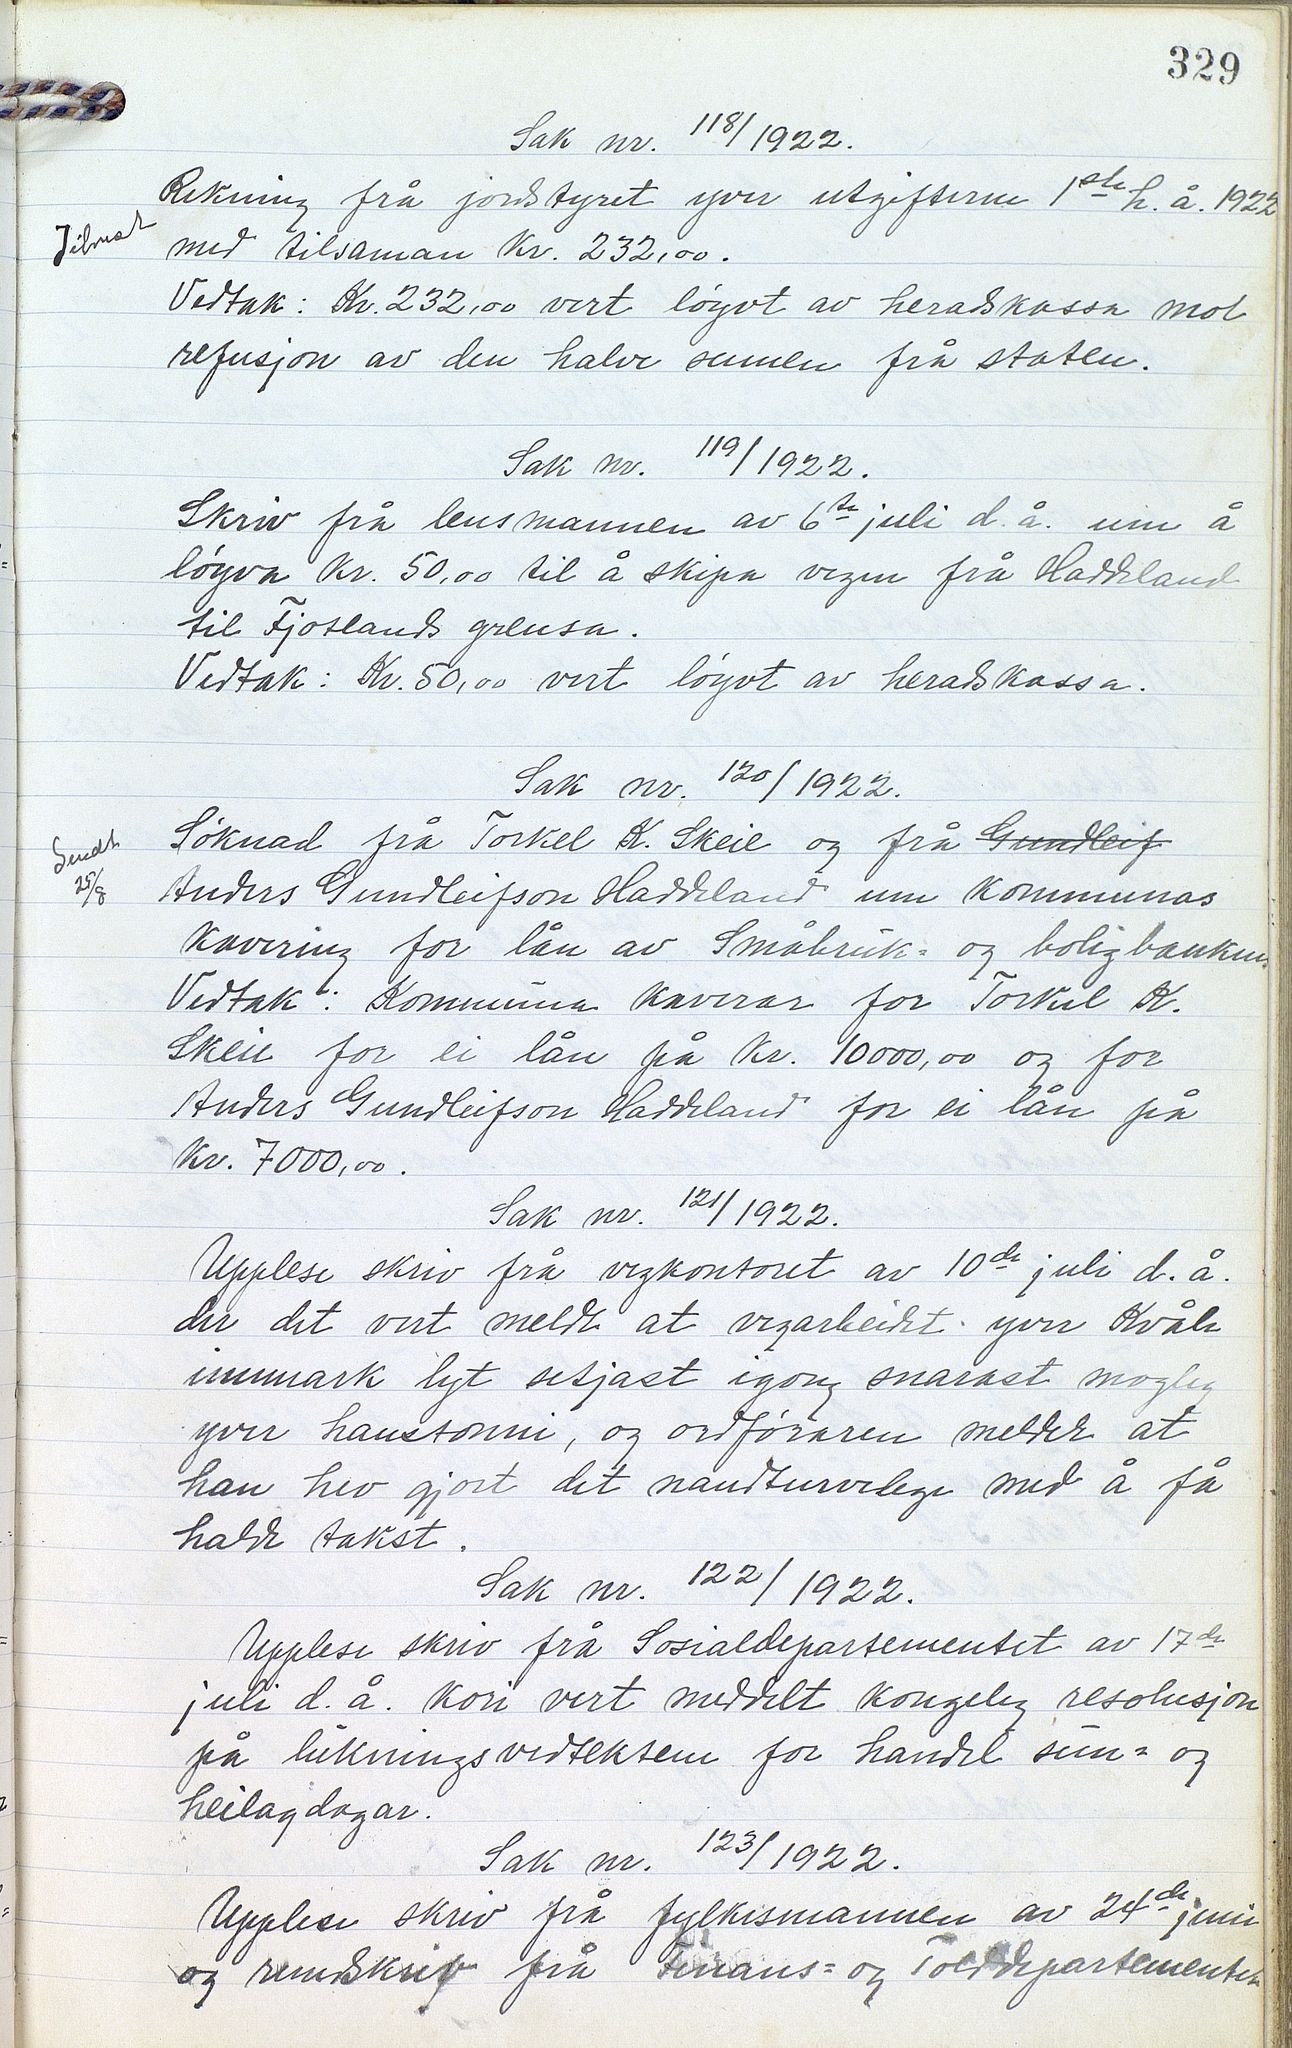 329
Sak nr. 118/1922.
Rekning frå jordstyret yver utgifterne 1ste h. å. 1922
Tilvist
med tilsaman kr. 232,00.
Vedtak: Kr. 232,00 vert løyvt av heradskassa mot
refusjon av den halve sumen frå staten.
Sak nr. 119/1922.
Skriv frå lensmannen av 6te juli d. å. um å
løyva kr. 50,00 til å skipa vegen frå Haddeland
til Fjotlands grensa.
Vedtak: Kr. 50,00 vert løyvt av heradskassa.
Sak nr. 120/1922.
Søknad frå Torkel K. Skeie og frå Gundleif
Sendt
25/8
Anders Gundleifson Haddeland um kommunas
kavering for lån av Småbruk= og boligbanken.
Vedtak: Kommuna kaverar for Torkel K.
Skeie for ei lån på kr. 10000,00 og for
Anders Gundleifson Haddeland for ei lån på
kr. 7000,00.
Sak nr. 121/1922.
Upplese skriv frå vegkontoret av 10de juli d. å.
der det vert meldt at vegarbeidet yver Kvåle
innmark lyt setjast igong snarast mogleg
yver haustonni, og ordføraren melder at
han hev gjort det naudturvelege med å få
halde takst.
Sak nr. 122/1922.
Upplese skriv frå Sosialdepartementet av 17de
juli d. å. kori vert meddelt kongeleg resolusjon
på lukningsvedtektene for handel sun= og
heilagdagar.
Sak nr. 123/1922.
Upplese skriv frå fylkesmannen av 24de juni
og rundskriv frå Finans= og Tolddepartementet